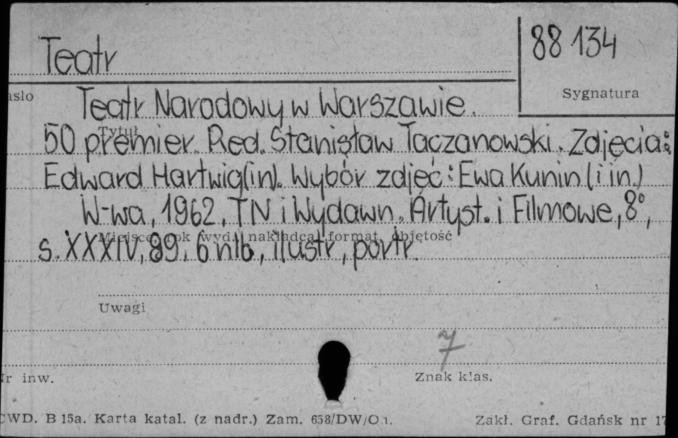 Teatr
88 134
Sygnatura
Teatr Narodowy w Warszawie.
50 premier. Red. Stanisław Taczanowski. Zdjęcia:
Edward Hartwig (in). Wybór zdjęć: Ewa Kunin (i in.)
W-wa, 1962, TN i Wydawn. Artyst. i Filmowe, 8°,
Miejsce, rok wyd., nakładca, format, objętość
s. XXXIV, 89, 6 nlb, ilustr., portr.
Uwagi
7
Nr inw.
Znak klas.
CWD. B 15a. Karta katal. (z nadr.) Zam. 658/DW/O
Zakł. Graf. Gdańsk nr 17